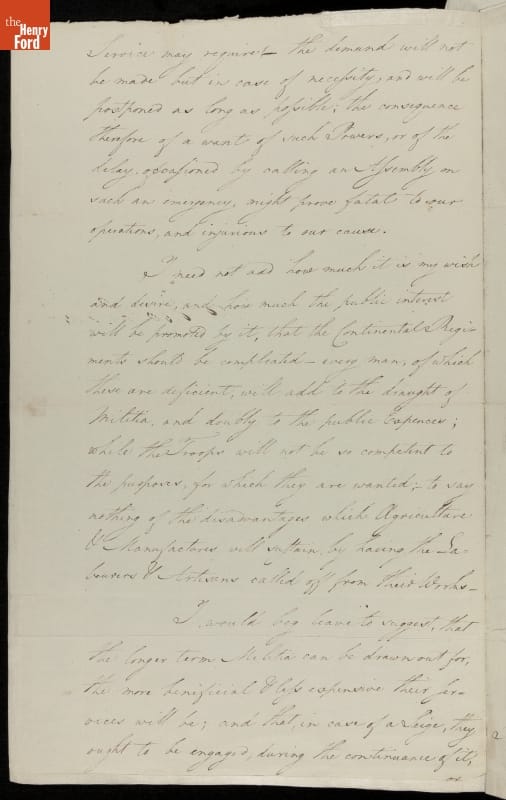 the
Henry
Ford
Service may require – the demand will not
be made but in case of necessity, and will be
postponed as long as possible; the consequence
therefore of a want of such Powers, or of the
delay, occasioned by calling an Assembly on
such an emergency, might prove fatal to our
operations, and injurious to our cause.
I need not add how much it is my wish
and desire, and how much the public interest
will be promoted by it, that the Continental Regi-
ments should be compleated – every man, of which
these are deficient, will add to the draught of
Militia, and doubly to the public Expences;
while the Troops will not be so competent to
the purposes, for which they are wanted; – to say
nothing of the disadvantages which Agriculture
& Manufactures will sustain, by having the La-
bourers & Artisans called off from their Works –
I would beg leave to suggest, that
the longer term Militia can be drawn out for,
the more benificial & less expensive their ser-
vices will be; and that, in case of a Seige, they
ought to be engaged, during the continuance of it,
or
2